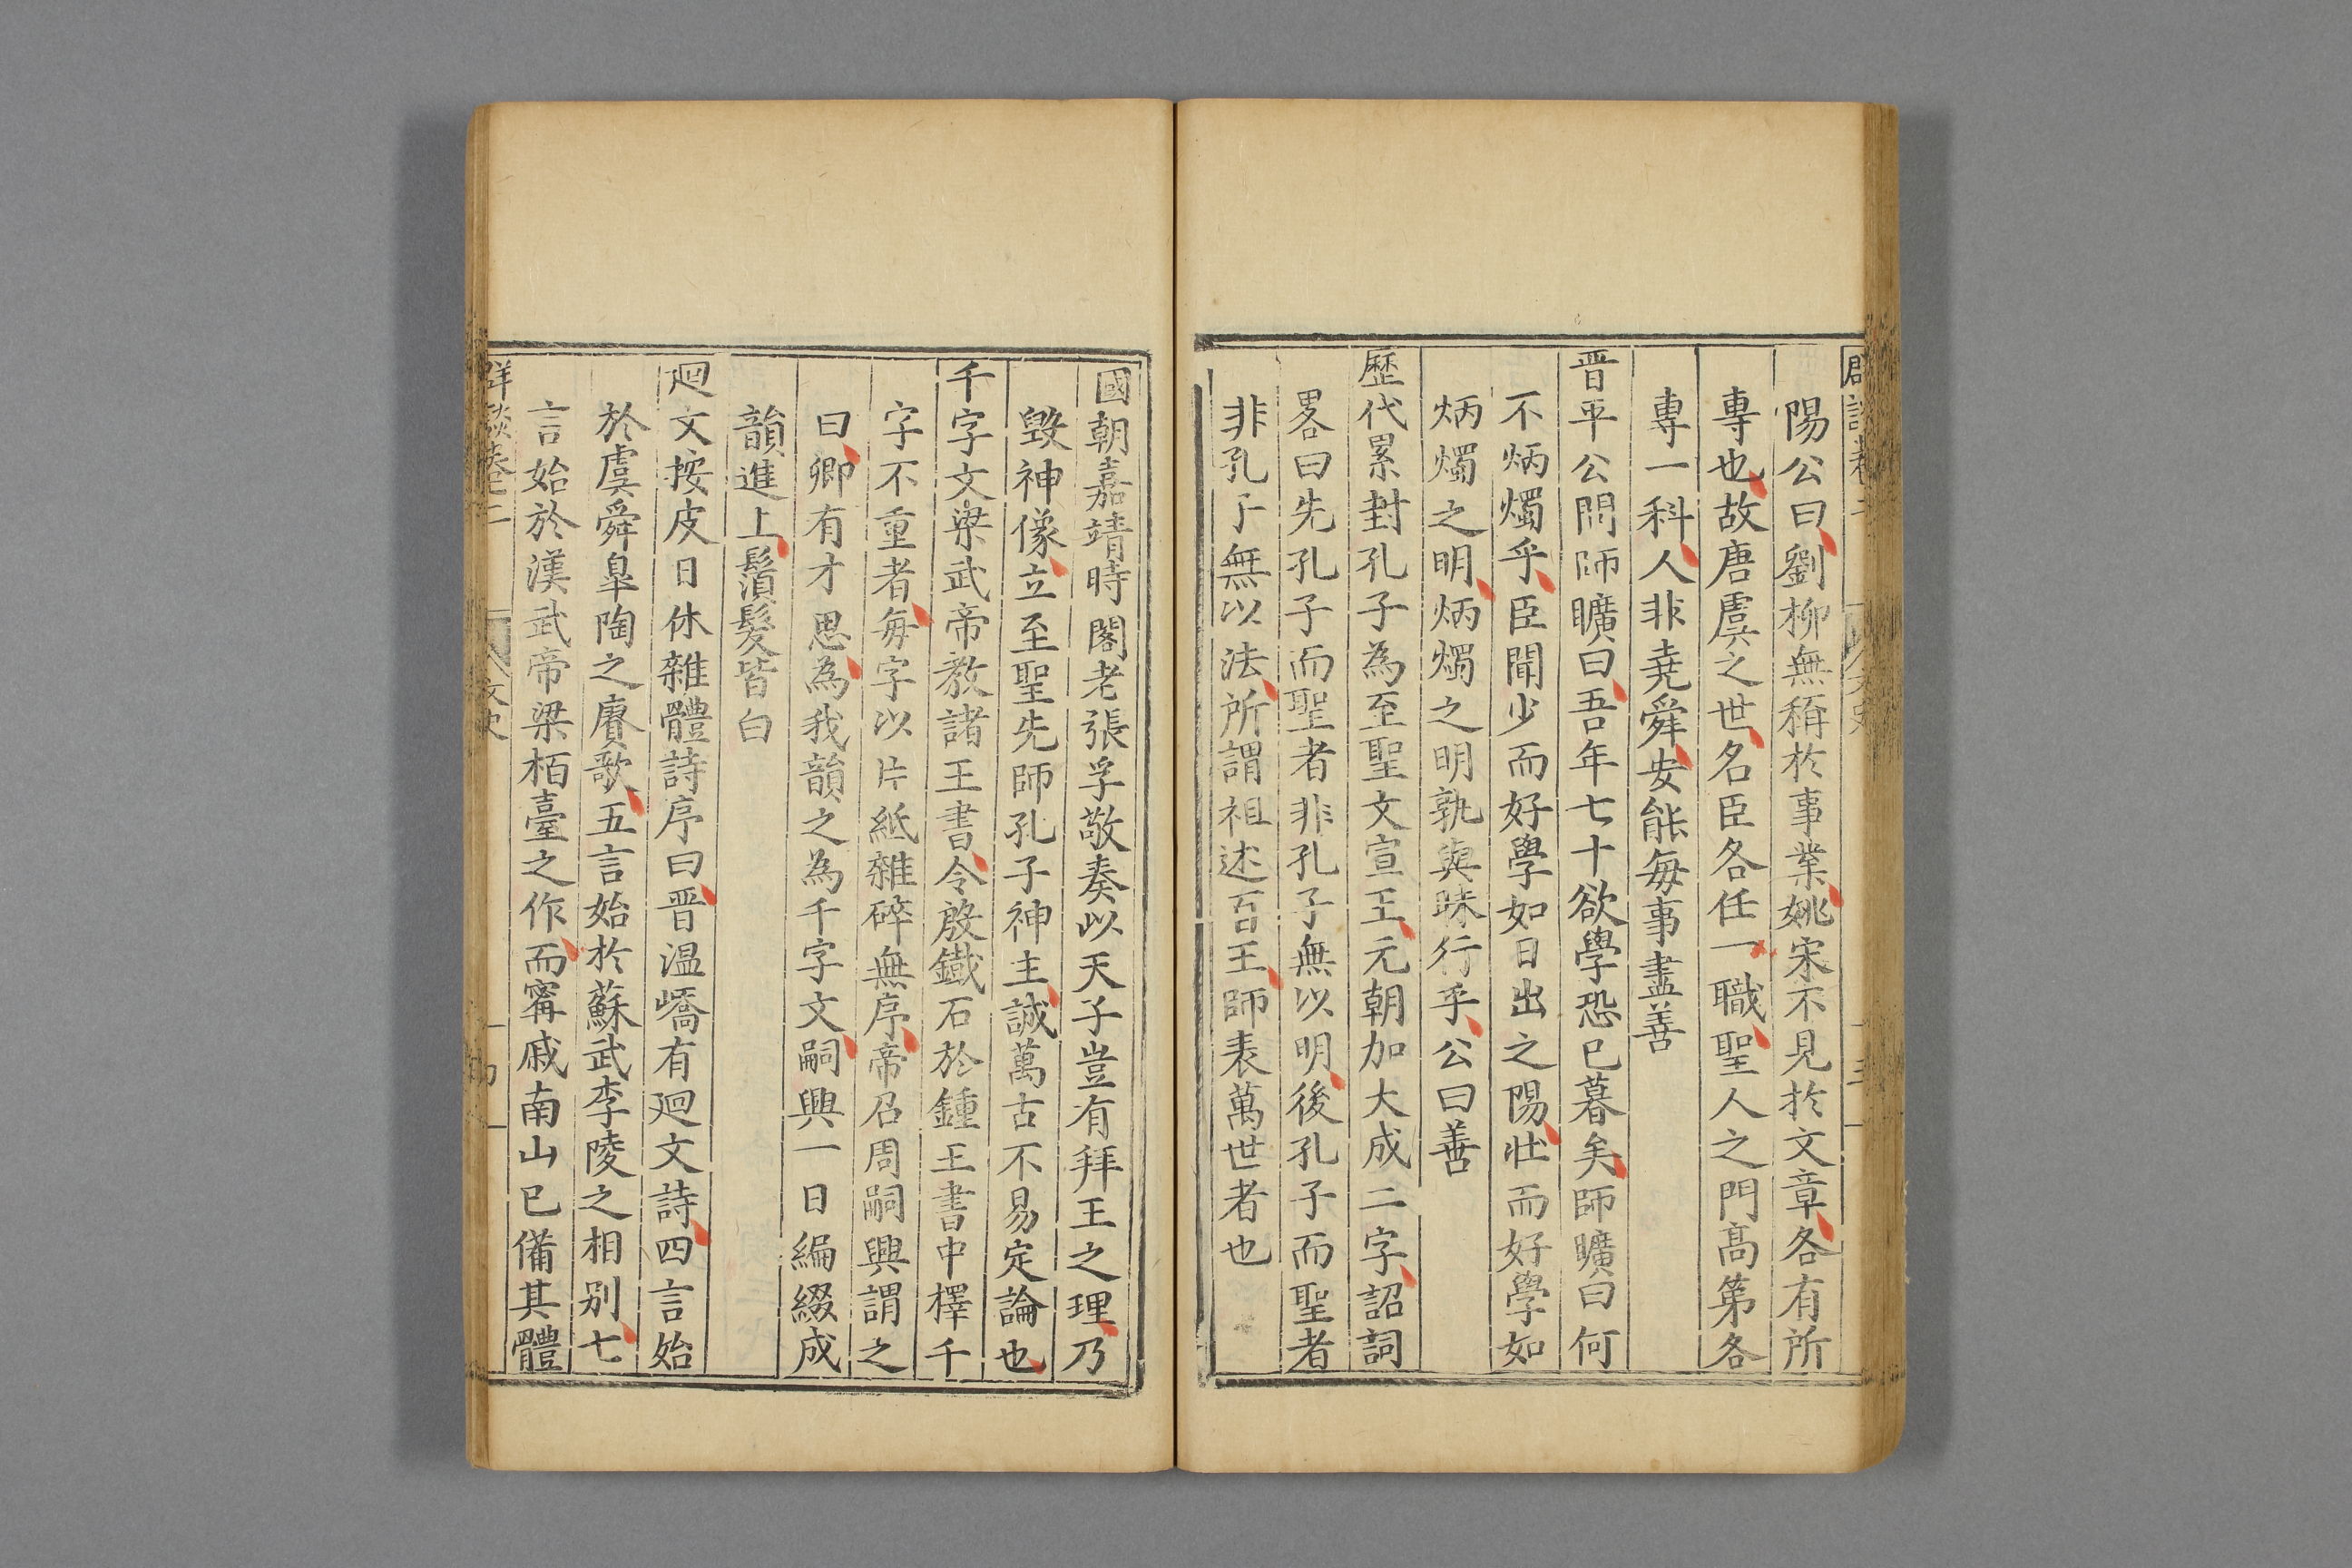 陽公曰劉柳無稱於事業姚宋不見於文章各有所
專也故唐虞之世名臣各任一職聖人之門高第各
專一科人非堯舜安能每事盡善
晋平公問師曠曰吾年七十欲學恐已暮矣師曠曰何
不炳燭乎臣聞少而好學如日出之陽壯而好學如
炳燭之明炳燭之明孰與昧行乎公曰善
歷代累封孔子為至聖文宣王元朝加大成二字詔詞
畧曰先孔子而聖者非孔子無以明後孔子而聖者
非孔子無以法所謂祖述百王師表萬世者也
國朝嘉靖時閣老張孚敬奏以天子豈有拜王之理乃
毀神像立至聖先師孔子神主誠萬古不易定論也
千字文梁武帝教諸王書令殷鐵石於鍾王書中擇千
字不重者每字以片紙雜碎無序帝召周嗣興謂之
曰卿有才思為我韻之為千字文嗣興一日編綴成
韻進上鬚髮皆白
廻文按皮日休雜體詩序曰晋温嶠有廻文詩四言始
於虞舜臯陶之賡歌五言始於蘇武李陵之相别七
言始於漢武帝梁栢臺之作而甯戚南山已備其體
群談卷二 文史